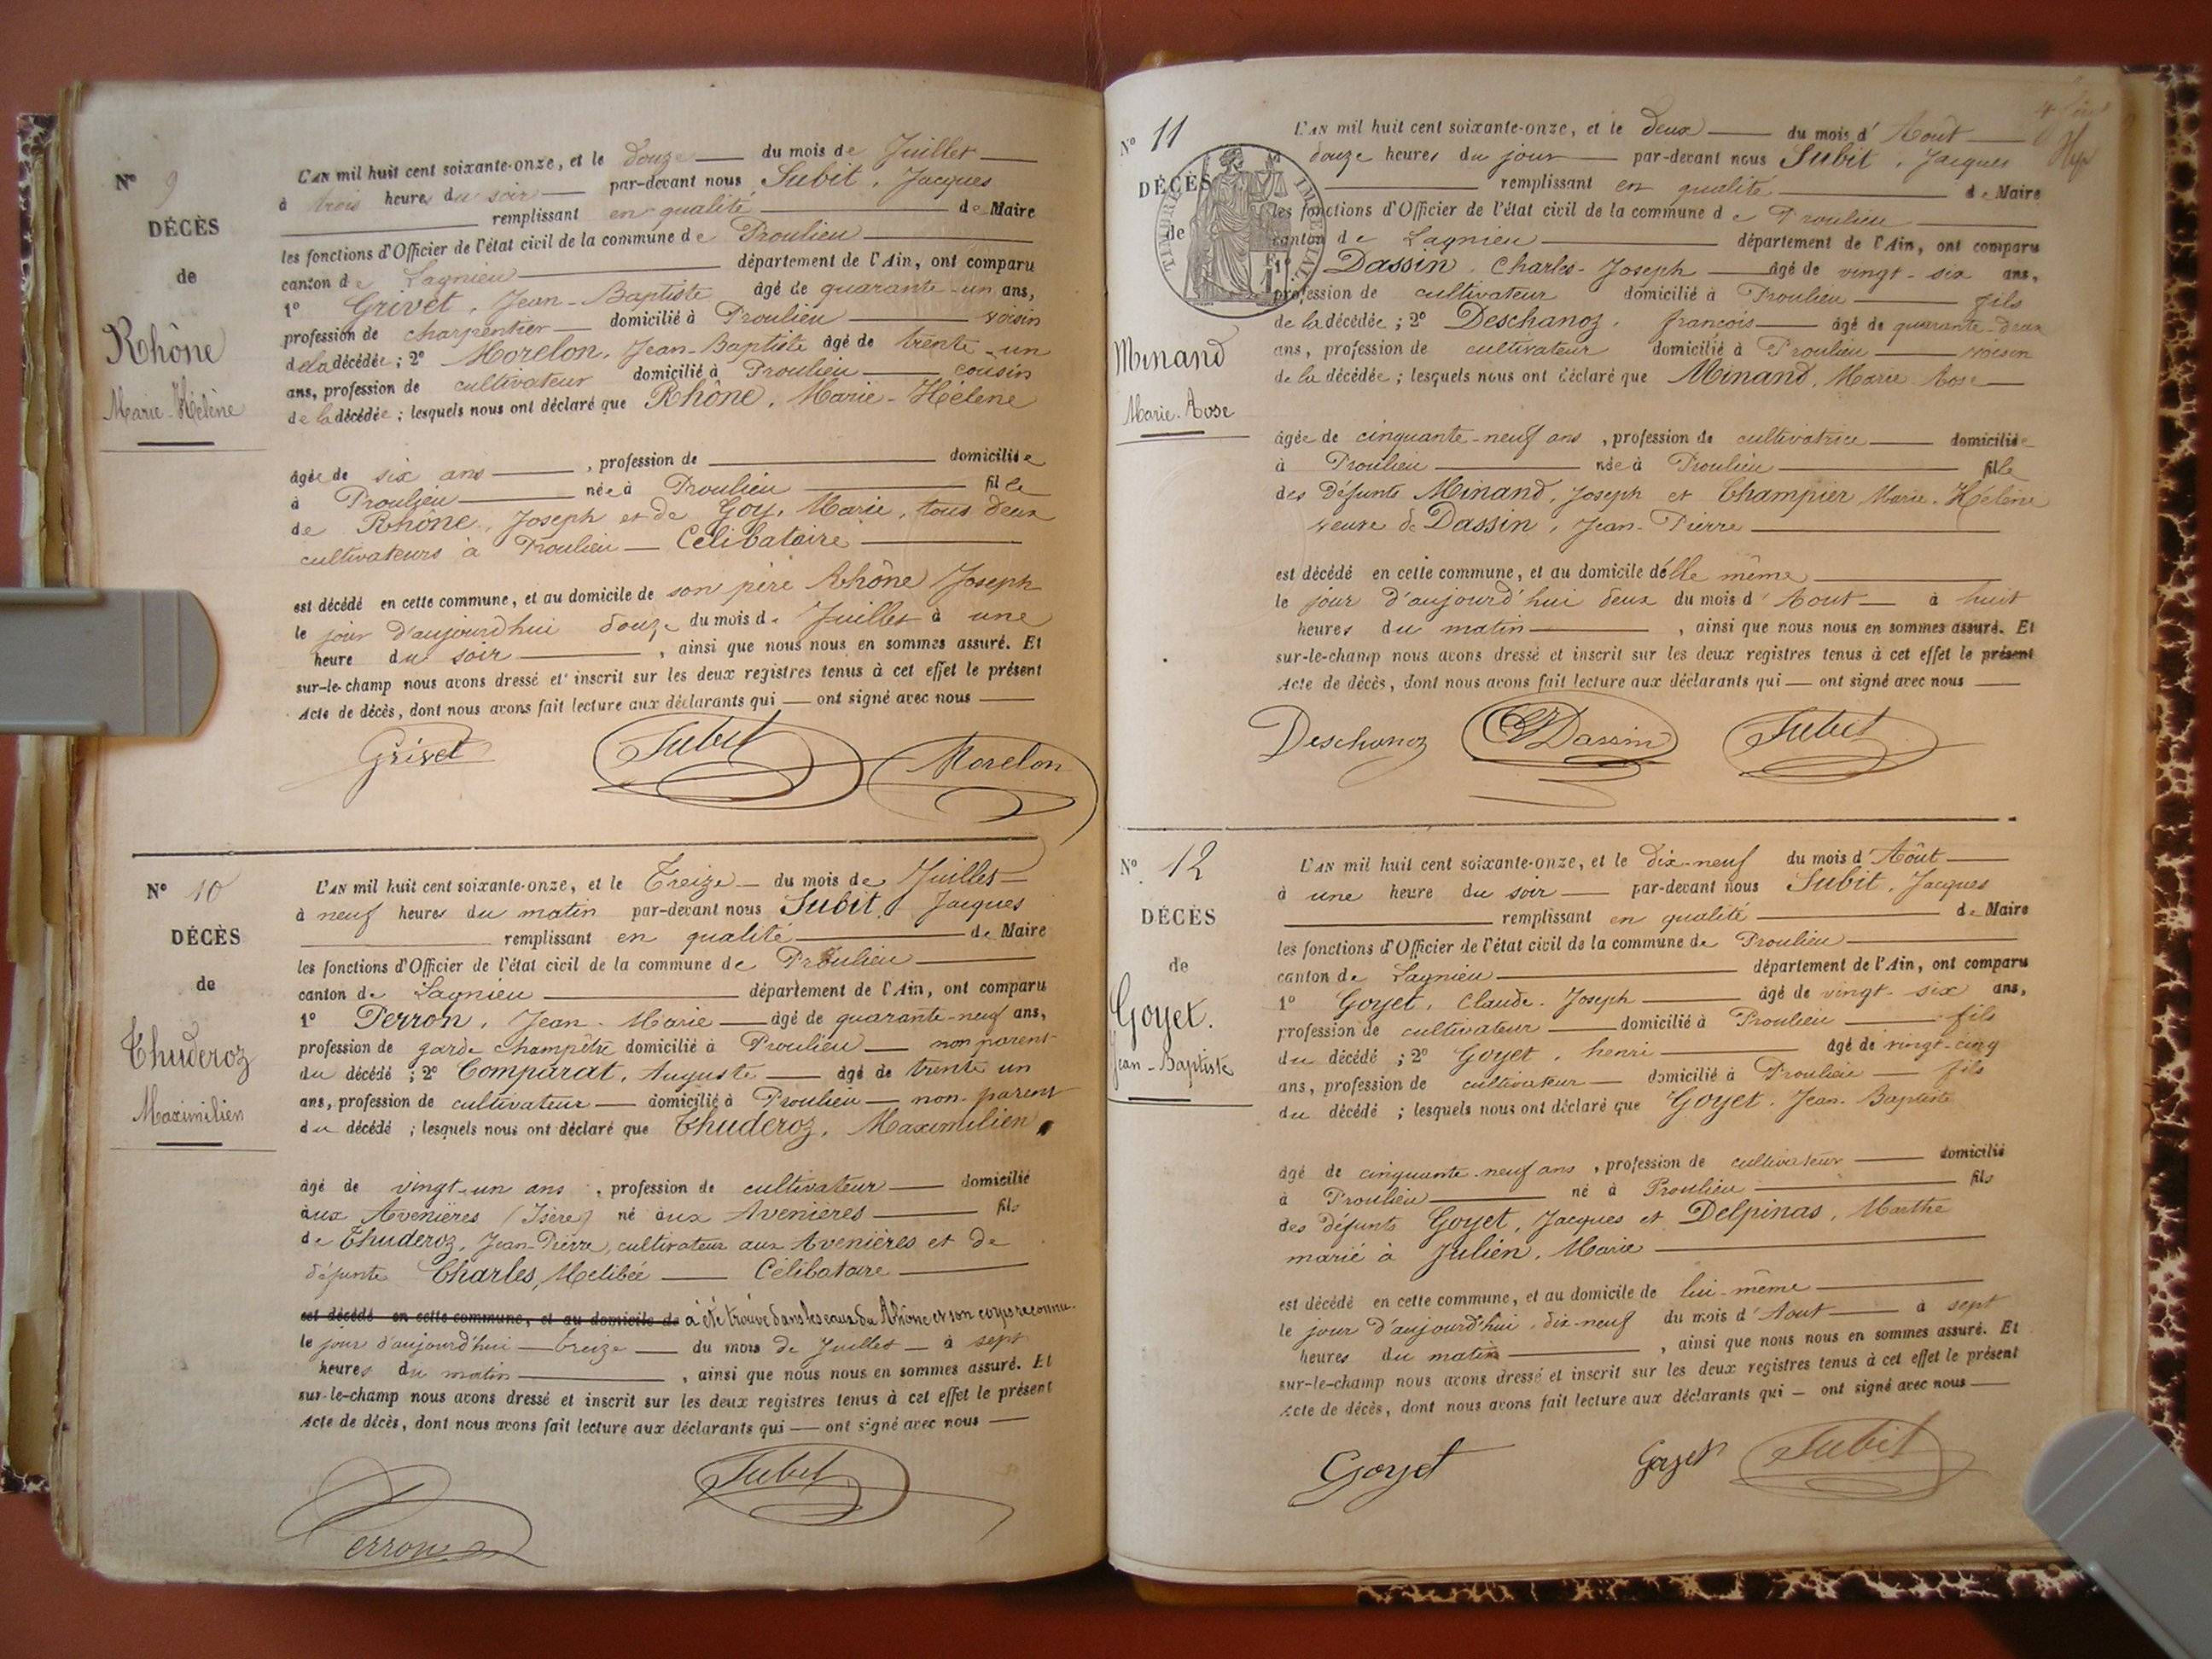 N° 9
DÉCÈS
de
Rhône
Marie-Hélène
L'AN mil huit cent soixante-onze, et le douze du mois de Juillet
à trois heures du soir par-devant nous Subit, Jacques
remplissant en qualité de Maire
les fonctions d'Officier de l'état civil de la commune de Proulieu
canton de Lagnieu département de l'Ain, ont comparu
1° Grivet, Jean-Baptiste âgé de quarante-un ans,
profession de charpentier domicilié à Proulieu voisin
de la décédée ; 2° Morelon, Jean-Baptiste âgé de trente-un
ans, profession de cultivateur domicilié à Proulieu cousin
de la décédée ; lesquels nous ont déclaré que Rhône, Marie-Hélène
âgée de six ans , profession de domiciliée
à Proulieu née à Proulieu fille
de Rhône, Joseph et de Goy, Marie, tous deux
cultivateurs à Proulieu — Célibataire
est décédé en cette commune, et au domicile de son père Rhône Joseph
le jour d'aujourd'hui douze du mois de Juillet à une
heure du soir , ainsi que nous nous en sommes assuré. Et
sur-le-champ nous avons dressé et inscrit sur les deux registres tenus à cet effet le présent
Acte de décès, dont nous avons fait lecture aux déclarants qui — ont signé avec nous
Grivet Subit Morelon
N° 10
DÉCÈS
de
Thuderoz
Maximilien
L'AN mil huit cent soixante-onze, et le Treize du mois de Juillet
à neuf heures du matin par-devant nous Subit, Jacques
remplissant en qualité de Maire
les fonctions d'Officier de l'état civil de la commune de Proulieu
canton de Lagnieu département de l'Ain, ont comparu
1° Perron, Jean-Marie âgé de quarante-neuf ans,
profession de garde champêtre domicilié à Proulieu — non parent
du décédé ; 2° Comparat, Auguste âgé de trente un
ans, profession de cultivateur domicilié à Proulieu — non-parent
du décédé ; lesquels nous ont déclaré que Thuderoz, Maximilien
âgé de vingt-un ans , profession de cultivateur domicilié
aux Avenières (Isère) né aux Avenières fils
de Thuderoz, Jean-Pierre, cultivateur aux Avenières et de
défunte Charles, Mélibée — Célibataire
est décédé en cette commune, et au domicile de a été trouvé dans les eaux du Rhône et son corps reconnu
le jour d'aujourd'hui — treize — du mois de Juillet — à sept
heures du matin , ainsi que nous nous en sommes assuré. Et
sur-le-champ nous avons dressé et inscrit sur les deux registres tenus à cet effet le présent
Acte de décès, dont nous avons fait lecture aux déclarants qui — ont signé avec nous
Perron Subit
N° 11
DÉCÈS
de
TIMBRE IMPÉRIAL
Minand
Marie-Rose
L'AN mil huit cent soixante-onze, et le deux du mois d'Aout
à douze heures du jour par-devant nous Subit, Jacques
remplissant en qualité de Maire
les fonctions d'Officier de l'état civil de la commune de Proulieu
canton de Lagnieu département de l'Ain, ont comparu
1° Dassin, Charles-Joseph âgé de vingt-six ans,
profession de cultivateur domicilié à Proulieu fils
de la décédée ; 2° Deschanoz, françois âgé de quarante-deux
ans, profession de cultivateur domicilié à Proulieu voisin
de la décédée ; lesquels nous ont déclaré que Minand, Marie Rose
âgée de cinquante-neuf ans , profession de cultivatrice domiciliée
à Proulieu née à Proulieu fille
des défunts Minand, Joseph et Champier, Marie-Hélène
veuve de Dassin, Jean-Pierre
est décédé en cette commune, et au domicile d'elle même
le jour d'aujourd'hui deux du mois d'Aout à huit
heures du matin , ainsi que nous nous en sommes assuré. Et
sur-le-champ nous avons dressé et inscrit sur les deux registres tenus à cet effet le présent
Acte de décès, dont nous avons fait lecture aux déclarants qui — ont signé avec nous
Deschanoz Dassin Subit
N° 12
DÉCÈS
de
Goyet.
Jean-Baptiste
L'AN mil huit cent soixante-onze, et le dix-neuf du mois d'Août
à une heure du soir par-devant nous Subit, Jacques
remplissant en qualité de Maire
les fonctions d'Officier de l'état civil de la commune de Proulieu
canton de Lagnieu département de l'Ain, ont comparu
1° Goyet, Claude-Joseph âgé de vingt-six ans,
profession de cultivateur domicilié à Proulieu fils
du décédé ; 2° Goyet, henri âgé de vingt-cinq
ans, profession de cultivateur domicilié à Proulieu fils
du décédé ; lesquels nous ont déclaré que Goyet, Jean-Baptiste
âgé de cinquante-neuf ans , profession de cultivateur domicilié
à Proulieu né à Proulieu fils
des défunts Goyet, Jacques et Delpinas, Marthe
marié à Julien, Marie
est décédé en cette commune, et au domicile de lui-même
le jour d'aujourd'hui, dix-neuf du mois d'Aout à sept
heures du matin , ainsi que nous nous en sommes assuré. Et
sur-le-champ nous avons dressé et inscrit sur les deux registres tenus à cet effet le présent
Acte de décès, dont nous avons fait lecture aux déclarants qui — ont signé avec nous
Goyet Goyet Subit